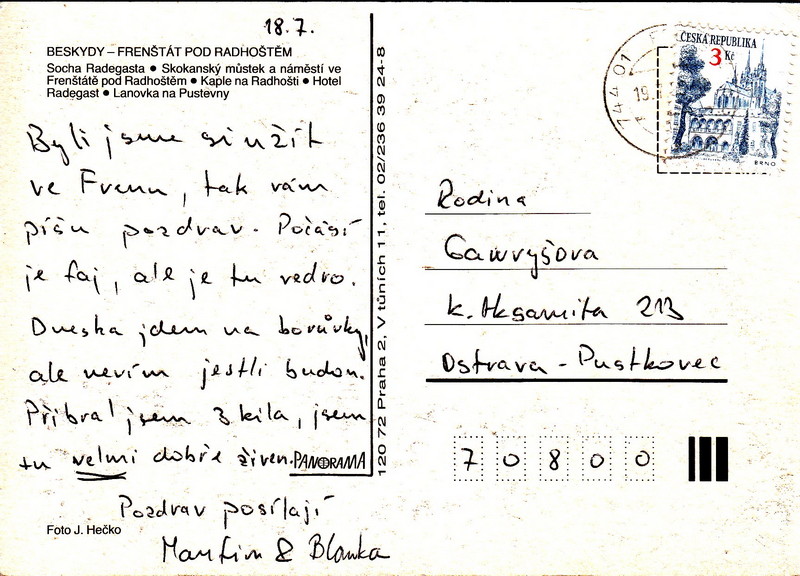 18.7.
BESKYDY – FRENŠTÁT POD RADHOŠTĚM
Socha Radegasta ● Skokanský můstek a náměstí ve
Frenštátě pod Radhoštěm ● Kaple na Radhošti ● Hotel
Radegast ● Lanovka na Pustevny
Byli jsme si užít
ve Frenu, tak vám
píšu pozdrav. Počásí
je faj, ale je tu vedro.
Dneska jdem na borůvky,
ale nevím jestli budou.
Přibral jsem 3 kila, jsem
tu velmi dobře živen.
PANORAMA
Pozdrav posílají
Foto J. Hečko
Martin & Blanka
120 72 Praha 2, V tůních 11, tel. 02/236 39 24-8
ČESKÁ REPUBLIKA
3 Kč
BRNO
744 01
19.
Rodina
Gawryšova
K. Aksamita 213
Ostrava - Pustkovec
70800